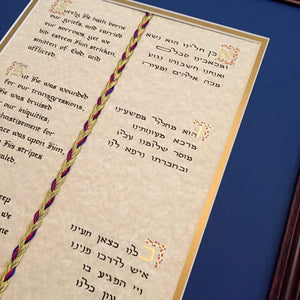 urely He hath borne
our griefs, and carried
our sorrows, yet we
did esteem Him stricken,
smitten of God and
afflicted.
But He was wounded
for our transgressions,
He was bruised
our iniquities;
chastisement for
was upon Him,
His stripes
we
אכן חלינו הוא נשא
ומכאבינו סבלם
ואנחנו חשבנוהו נגוע
מכה אלהים ומענה
והוא מחלל מפשעינו
מדכא מעונותינו
מוסר שלומנו עליו
ובחברתו נרפא לנו
כלנו כצאן תעינו
איש לדרכו פנינו
ויי הפגיע בו
עון כלנו